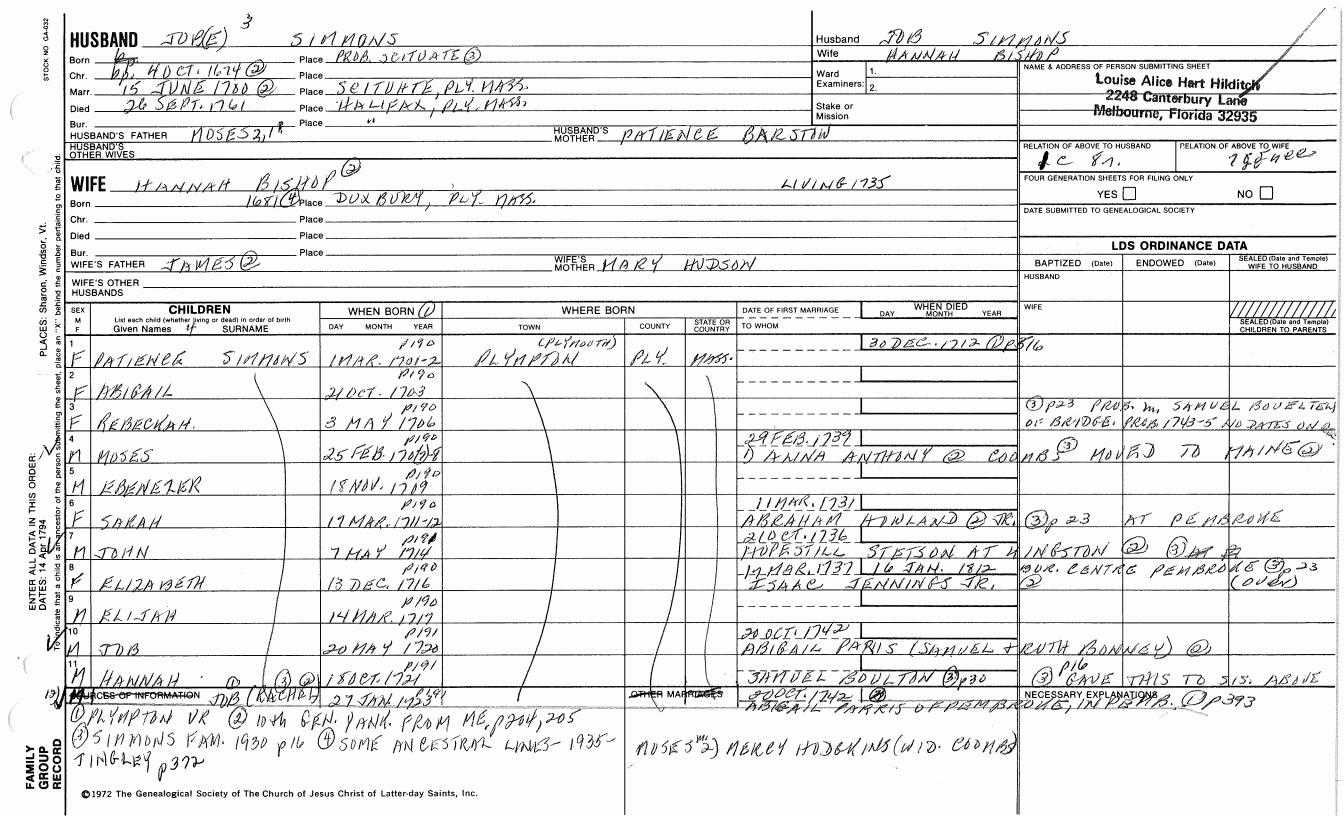 STOCK NO. GA-032
3
HUSBAND JOP(E) SIMMONS
Born Place PROB. SCITUATE ③
Chr. bp. 4 OCT. 1674 ② Place
Marr. 15 JUNE 1700 ② Place SCITUATE, PLY. MASS.
Died 26 SEPT. 1761 Place HALIFAX, PLY. MASS.
Bur. Place "
HUSBAND'S FATHER MOSES 2,1 HUSBAND'S MOTHER PATIENCE BARSTOW
HUSBAND'S OTHER WIVES
WIFE HANNAH BISHOP ② LIVING 1735
Born 1681 ④ Place DUXBURY, PLY. MASS.
Chr. Place
Died Place
Bur. Place
WIFE'S FATHER JAMES ② WIFE'S MOTHER MARY HUDSON
WIFE'S OTHER HUSBANDS
Husband JOB SIMMONS
Wife HANNAH BISHOP
Ward 1.
Examiners: 2.
Stake or Mission
NAME & ADDRESS OF PERSON SUBMITTING SHEET
Louise Alice Hart Hilditch
2248 Canterbury Lane
Melbourne, Florida 32935
RELATION OF ABOVE TO HUSBAND RELATION OF ABOVE TO WIFE
FOUR GENERATION SHEETS FOR FILING ONLY
YES NO
DATE SUBMITTED TO GENEALOGICAL SOCIETY
LDS ORDINANCE DATA
BAPTIZED (Date) ENDOWED (Date) SEALED (Date and Temple) WIFE TO HUSBAND
HUSBAND
WIFE
SEALED (Date and Temple) CHILDREN TO PARENTS
SEX M F CHILDREN WHEN BORN ① WHERE BORN DATE OF FIRST MARRIAGE WHEN DIED
List each child (whether living or dead) in order of birth
Given Names 4 SURNAME DAY MONTH YEAR TOWN COUNTY STATE OR COUNTRY TO WHOM DAY MONTH YEAR
1 p190 (PLYMOUTH) 30 DEC. 1712 ① p316
F PATIENCE SIMMONS 1 MAR. 1701-2 PLYMPTON PLY. MASS.
2 p190
F ABIGAIL 21 OCT. 1703
3 p190 ③ p23 PROB. m. SAMUEL BOUELTEN
F REBECKAH. 3 MAY 1706 OF BRIDGE. PROB. 1743-5 NO DATES ON
4 p190 29 FEB. 1739
M MOSES 25 FEB. 1707-8 1) ANNA ANTHONY ② COOMBS ③ MOVED TO MAINE ②
5 p190
M EBENEZER 18 NOV. 1709
6 p190 11 MAR. 1731
F SARAH 17 MAR. 1711-12 ABRAHAM HOWLAND ② JR. ③ p23 AT PEMBROKE
7 p191 21 OCT. 1736
M JOHN 7 MAY 1714 HOPESTILL STETSON AT KINGSTON ② ③
8 p190 17 MAR. 1737 16 JAN. 1812 BUR. CENTRE PEMBROKE ③ p23
F ELIZABETH 13 DEC. 1716 ISAAC JENNINGS JR. ② (OVER)
9 p190
M ELIJAH 14 MAR. 1717
10 p191 20 OCT. 1742
M JOB 20 MAY 1720 ABIGAIL PARIS (SAMUEL & RUTH BONNEY) ②
11 p191 p16
M HANNAH 18 OCT. 1721 SAMUEL BOULTON ③ p30 ③ GAVE THIS TO SIS. ABOVE
SOURCES OF INFORMATION JOB (RACHOL) ① ③ ② 27 JAN. 1723 p391 OTHER MARRIAGES 20 OCT. 1742 NECESSARY EXPLANATIONS
ABIGAIL PARRIS OF PEMBROKE, IN PEMB. ① p393
① PLYMPTON VR ② 10th GEN. YANK. FROM ME, p204, 205
③ SIMMONS FAM. 1930 p16 ④ SOME ANCESTRAL LINES - 1935 -
TINGLEY p372
MOSES m 2) MERCY HODGKINS (WID. COOMBS)
©1972 The Genealogical Society of The Church of Jesus Christ of Latter-day Saints, Inc.
ENTER ALL DATA IN THIS ORDER:
DATES: 14 Apr 1794
PLACES: Sharon, Windsor, Vt.
To indicate that a child is an ancestor of the person submitting the sheet, place an "X" behind the number pertaining to that child.
FAMILY GROUP RECORD